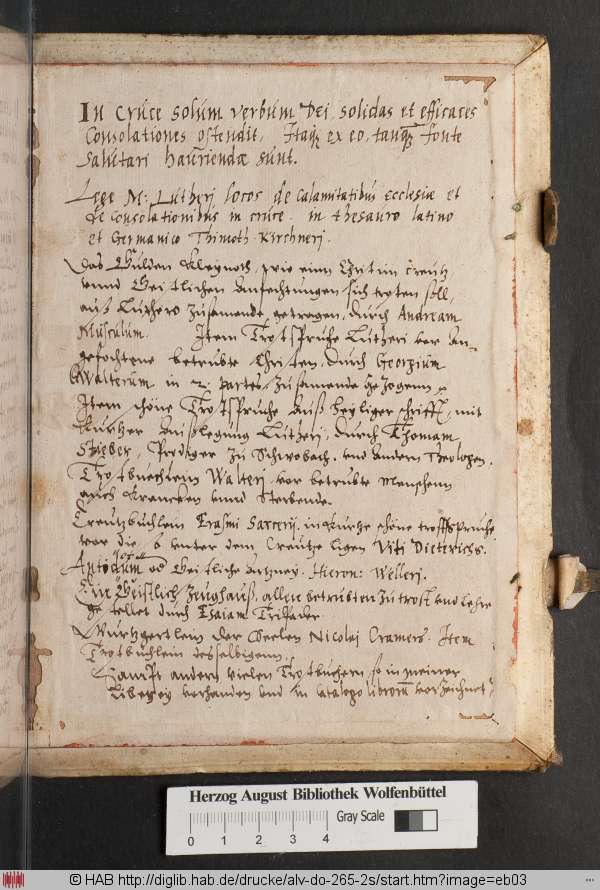 In Cruce solum verbum Dei, solidas et efficaces
Consolationes ostendit, Itaq; ex eo, tanq̃ fonte
salutari hauriendæ sunt.
Lege M: Lutherj locos de Calamitatibus Ecclesiæ et
de consolationibus in cruce. in thesauro latino
et Germanico Thimoth. Kirchnerj.
Das Gülden Kleynoth, wie einn Christ im Creutz
unnd Geistlichen Anfechtungen sich trosten soll,
auß Luthero zusamende getragen, durch Andream
Musculum. Item Trostspruche Lutheri vor An-
gefochtene betrubte Christen, durch Georgium
Walterum in 2. partes, zusamende gezogenn
Item schöne Trostspruche auß heyliger schrifft, mit
kurtzer außlegung Lutherj, durch Thomam
Stieber, Prediger zu Schwobach. und andern Theologen.
Trostbuechlein Walterj vor betrubte Menschenn
auch Krancken unnd Sterbende.
Creutzbuchlein Erasmi Sarcerij, in kurtze schöne trostspruche
vor die, so unter dem Creutze ligen Viti Dieterichs.
Antidotum od Geistliche artzney. Hieron: Wellerj.
Ein Geistlich Zeughauß, allen betrubten zu trost und lehre
gestellet durch Esaiam
Wurtzgertlein der Seelen Nicolaj Cramers. Item
Trostbuchlein desselbigenn.
Sampt andern vielen Trostbuchern so in meiner
Liberey vorhanden und in catalogo librorum vorzeichnet
Herzog August Bibliothek Wolfenbüttel
0 1 2 3 4 Gray Scale
© HAB http://diglib.hab.de/drucke/alv-do-265-2s/start.htm?image=eb03